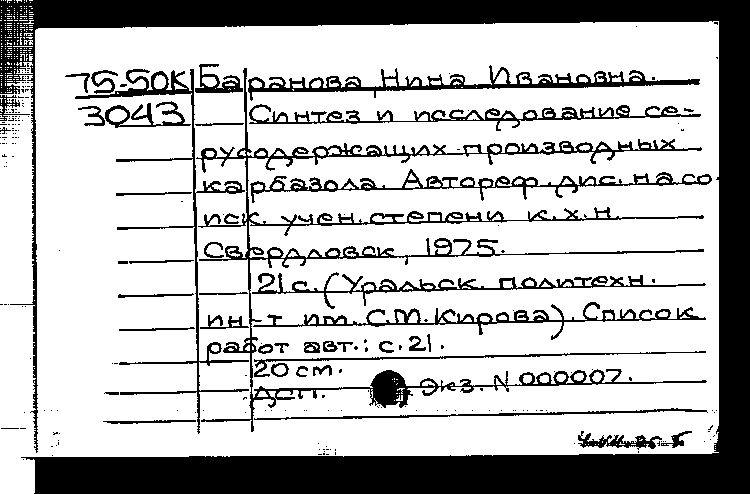 75-50К Баранова Нина Ивановна.
3043 Синтез и исследование се-
русодержащих производных
карбазола. Автореф. дис. на со
иск. учен. степени к.х.н.
Свердловск, 1975.
21 с. (Уральск. политехн.
ин-т им. С.М. Кирова). Список
работ авт.: с. 21.
20 см.
ДСП. Экз. N 000007.